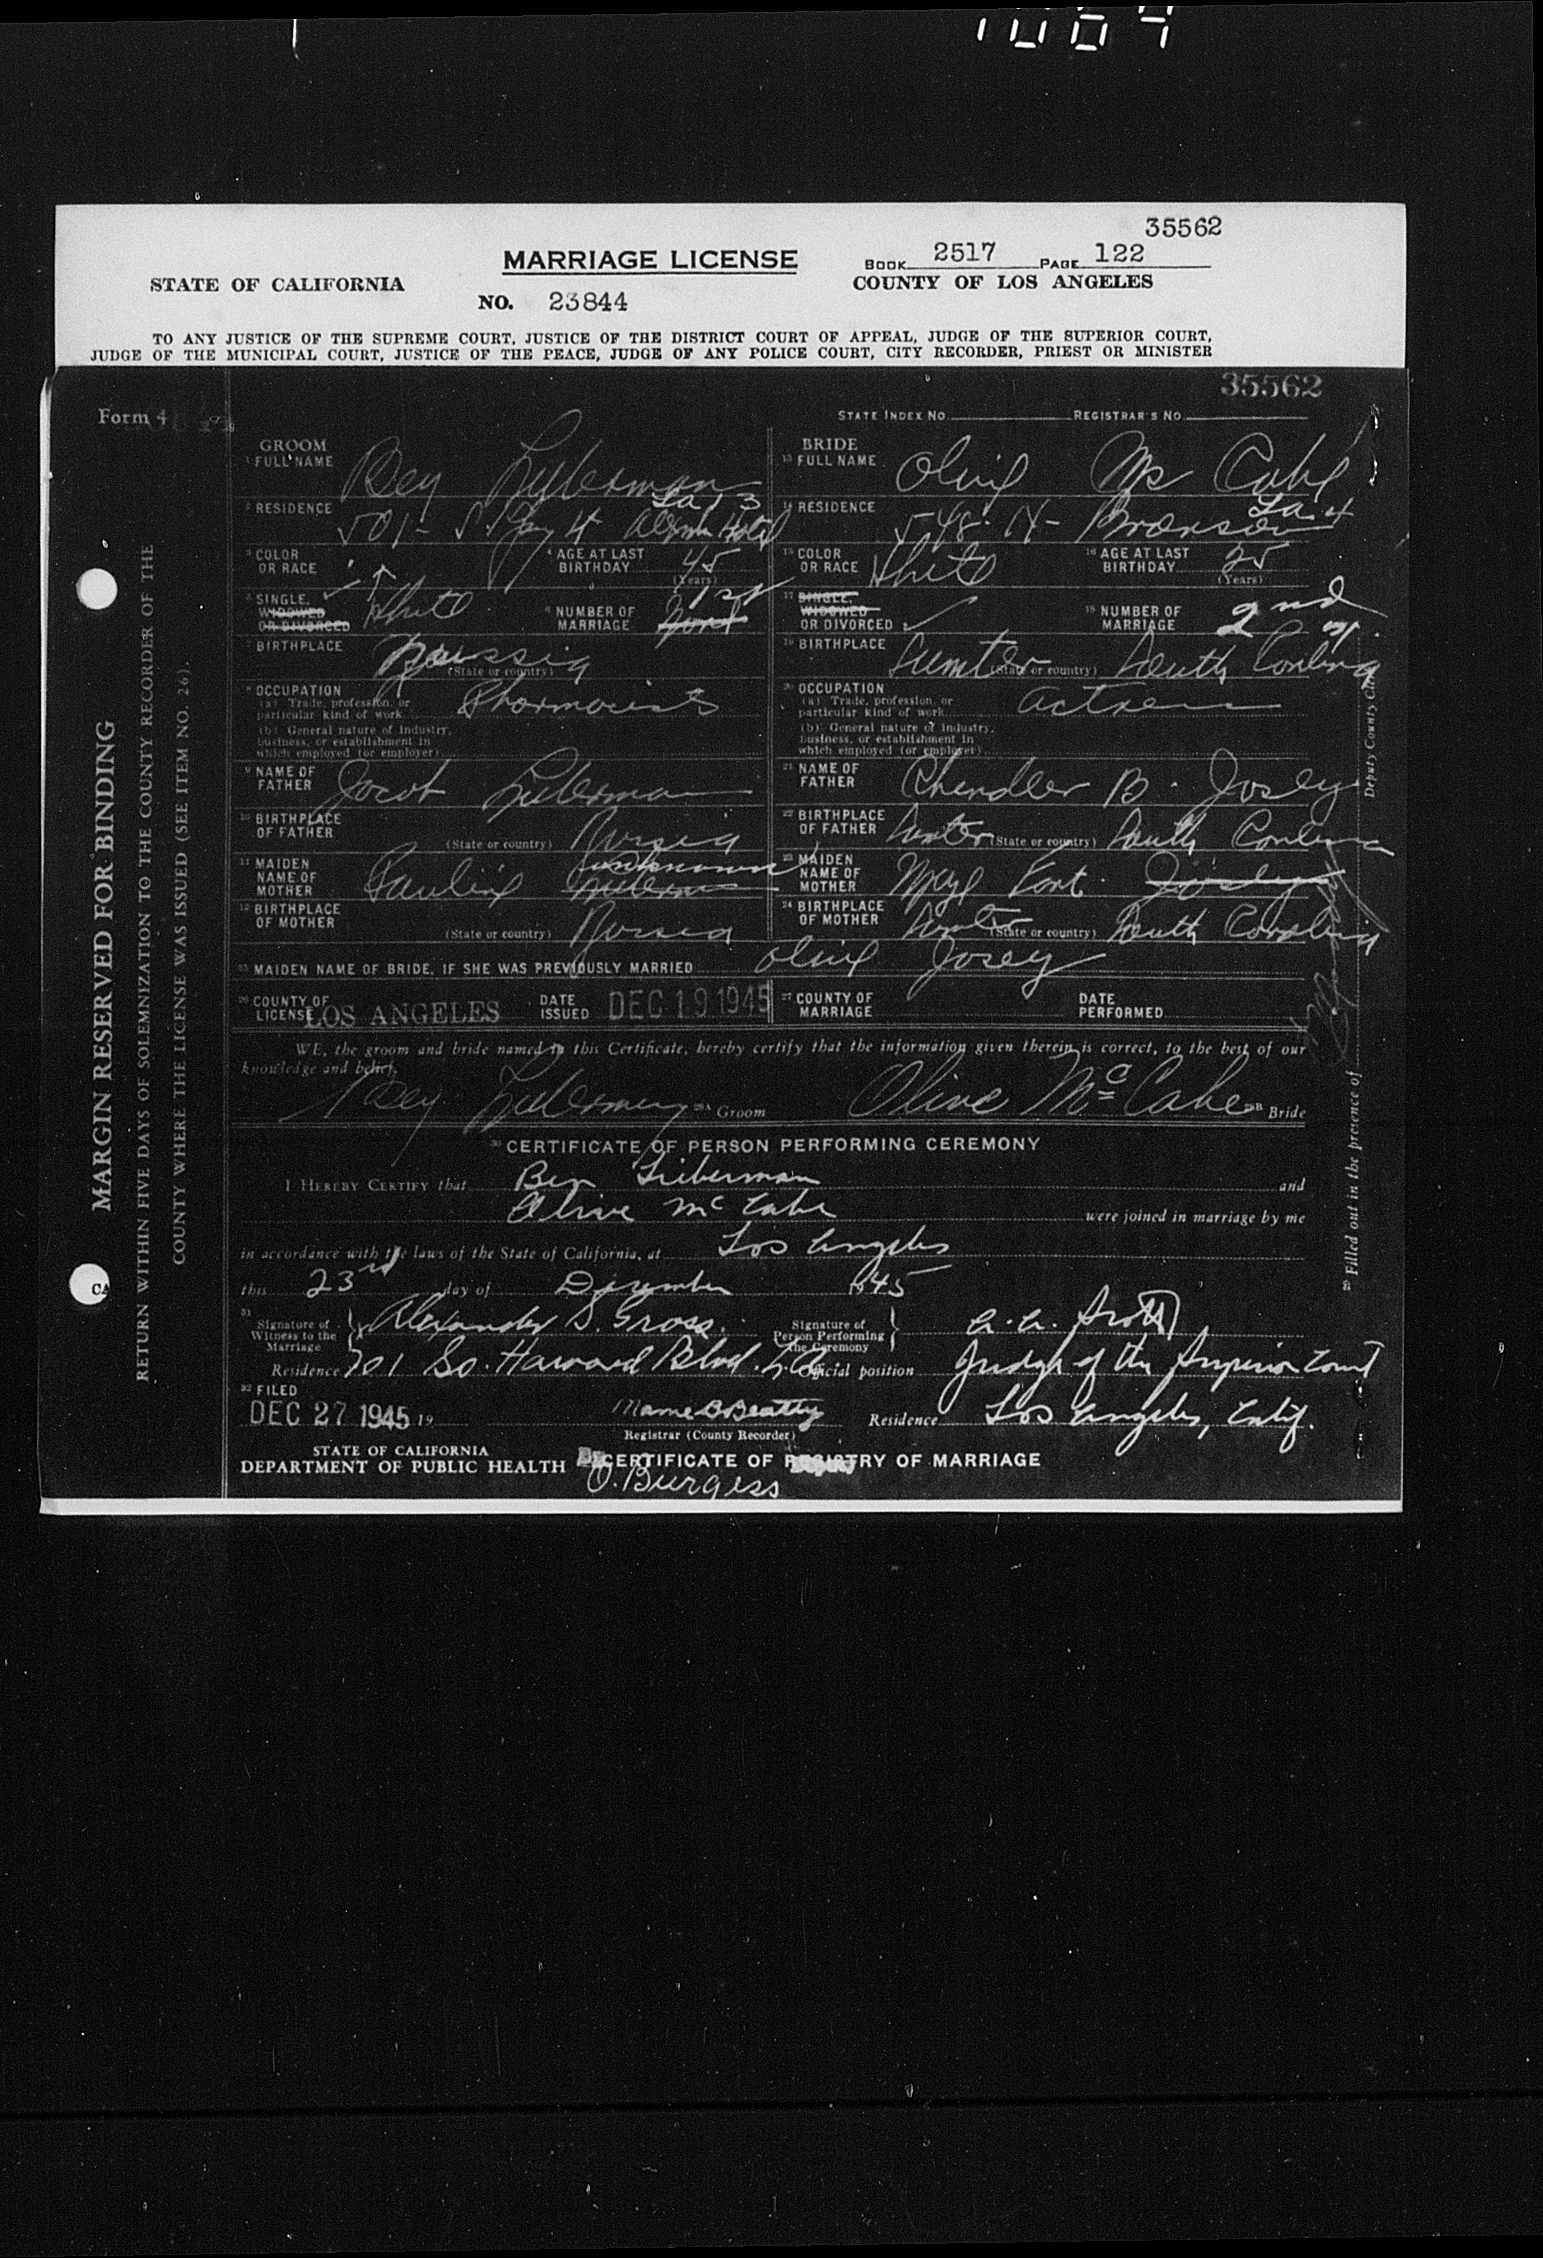 35562
MARRIAGE LICENSE
BOOK 2517 PAGE 122
STATE OF CALIFORNIA
COUNTY OF LOS ANGELES
NO. 23844
TO ANY JUSTICE OF THE SUPREME COURT, JUSTICE OF THE DISTRICT COURT OF APPEAL, JUDGE OF THE SUPERIOR COURT,
JUDGE OF THE MUNICIPAL COURT, JUSTICE OF THE PEACE, JUDGE OF ANY POLICE COURT, CITY RECORDER, PRIEST OR MINISTER
35562
Form 4
STATE INDEX NO. REGISTRAR'S NO.
MARGIN RESERVED FOR BINDING
RETURN WITHIN FIVE DAYS OF SOLEMNIZATION TO THE COUNTY RECORDER OF THE
COUNTY WHERE THE LICENSE WAS ISSUED (SEE ITEM NO. 26).
GROOM
1 FULL NAME Ben Lieberman
2 RESIDENCE 501- S. Hotel La 13
3 COLOR OR RACE White
4 AGE AT LAST BIRTHDAY 45 (Years)
5 SINGLE, WIDOWED OR DIVORCED
6 NUMBER OF MARRIAGE 1st
7 BIRTHPLACE Russia (State or country)
8 OCCUPATION
(a) Trade, profession, or particular kind of work Pharmacist
(b) General nature of industry, business, or establishment in which employed (or employer)
9 NAME OF FATHER Jacob Lieberman
10 BIRTHPLACE OF FATHER (State or country) Russia
11 MAIDEN NAME OF MOTHER Pauline unknown
12 BIRTHPLACE OF MOTHER (State or country) Russia
BRIDE
13 FULL NAME Olive Mc Cabe
14 RESIDENCE 548- N- Bronson La 4
15 COLOR OR RACE White
16 AGE AT LAST BIRTHDAY 25 (Years)
17 SINGLE, WIDOWED OR DIVORCED
18 NUMBER OF MARRIAGE 2nd
19 BIRTHPLACE Sumter (State or country) South Carolina
20 OCCUPATION
(a) Trade, profession, or particular kind of work actress
(b) General nature of industry, business, or establishment in which employed (or employer)
21 NAME OF FATHER Chandler B. Josey
22 BIRTHPLACE OF FATHER Sumter (State or country) South Carolina
23 MAIDEN NAME OF MOTHER Josey
24 BIRTHPLACE OF MOTHER Sumter (State or country) South Carolina
25 MAIDEN NAME OF BRIDE, IF SHE WAS PREVIOUSLY MARRIED Olive Josey
26 COUNTY OF LICENSE LOS ANGELES DATE ISSUED DEC 19 1945
27 COUNTY OF MARRIAGE DATE PERFORMED
WE, the groom and bride named in this Certificate, hereby certify that the information given therein is correct, to the best of our
knowledge and belief.
Ben Lieberman 28A Groom Olive McCabe 28B Bride
29 Filled out in the presence of Deputy County Clerk
30 CERTIFICATE OF PERSON PERFORMING CEREMONY
I HEREBY CERTIFY that Ben Lieberman and
Olive McCabe were joined in marriage by me
in accordance with the laws of the State of California, at Los Angeles
this 23rd day of December 1945
31 Signature of Witness to the Marriage Alexander S. Gross.
Signature of Person Performing the Ceremony A. A. Scott
Residence 701 So. Harvard Blvd. L.A. Official position Judge of the Superior Court
32 FILED
DEC 27 1945 19 Mame B. Beatty Residence Los Angeles, Calif.
Registrar (County Recorder)
STATE OF CALIFORNIA
DEPARTMENT OF PUBLIC HEALTH CERTIFICATE OF REGISTRY OF MARRIAGE
O. Burgess